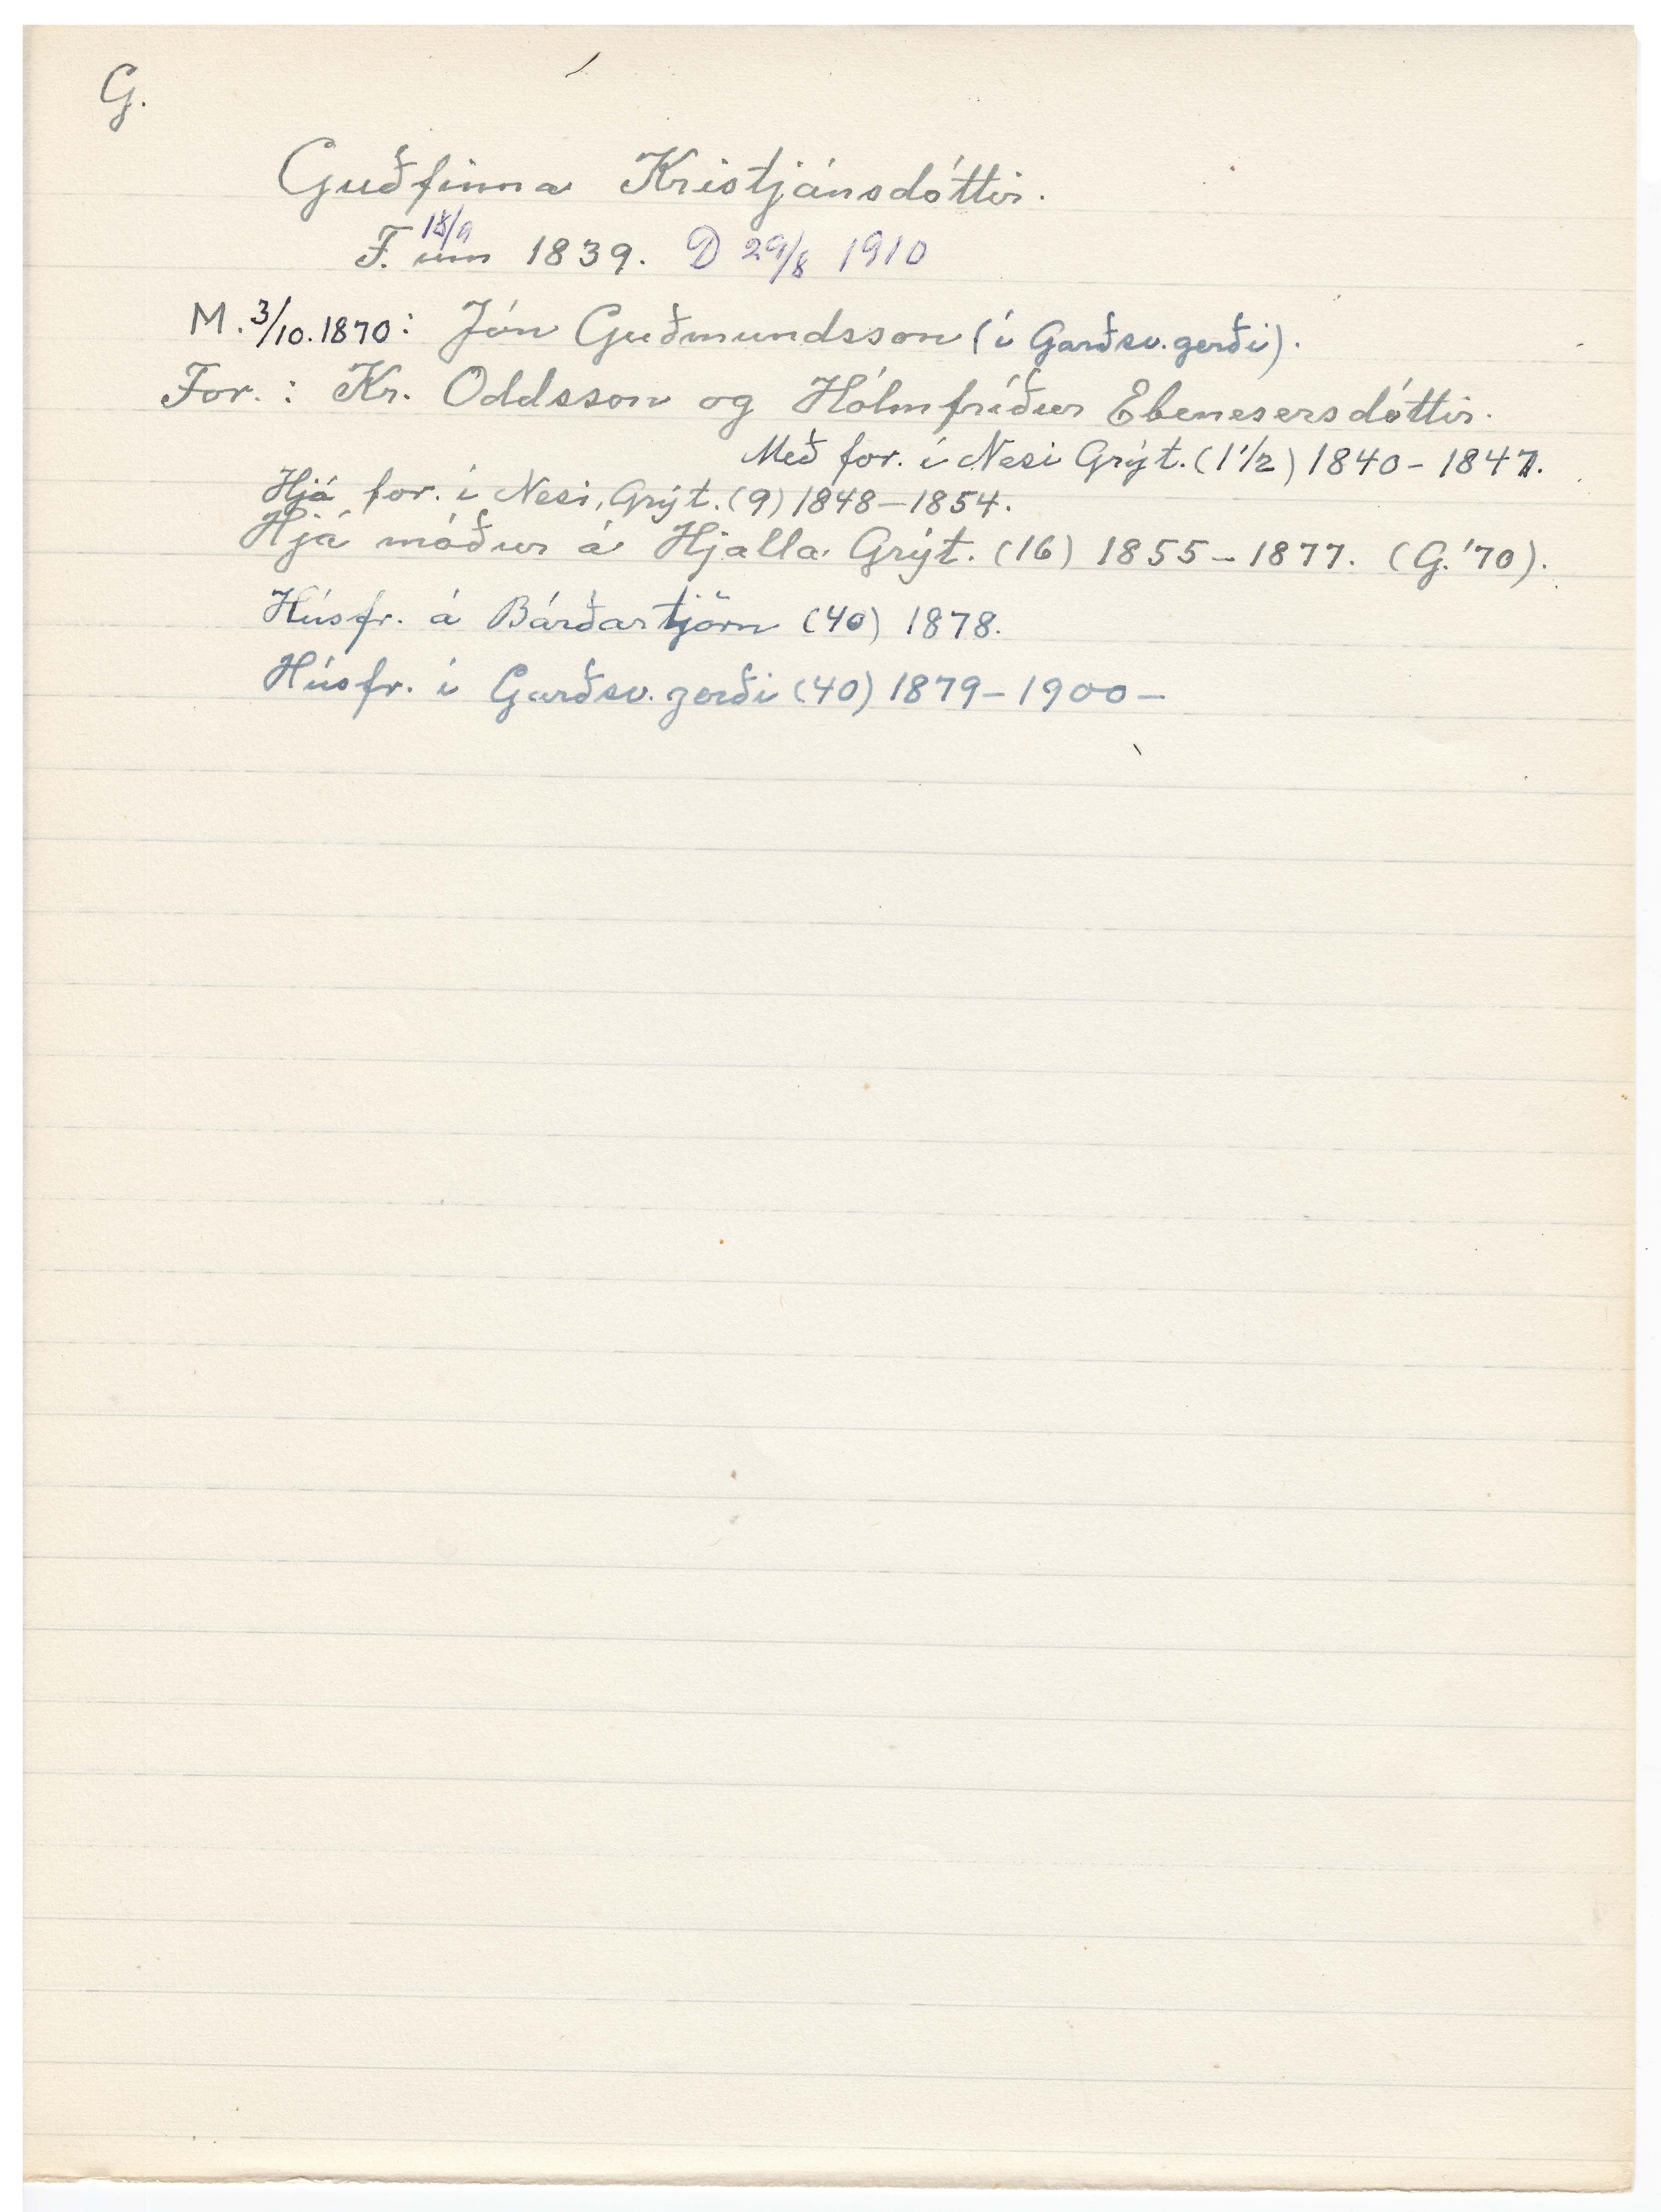 G.
Guðfinna Kristjánsdóttir.
F. um 1839. D 29/8 1910
M. 3/10. 1870: Jón Guðmundsson (í Garðsv. gerði).
For. : Kr. Oddsson og Hólmfríður Ebenesersdóttir.
Með for. í Nesi Grýt. (1 1/2) 1840 - 1847.
Hjá for. í Nesi, Grýt. (9) 1848 - 1854.
Hjá móður á Hjalla. Grýt. (16) 1855 - 1877. (G. '70).
Húsfr. á Bárðartjörn (40) 1878.
Húsfr. í Garðsv. gerði (40) 1879 - 1900 -